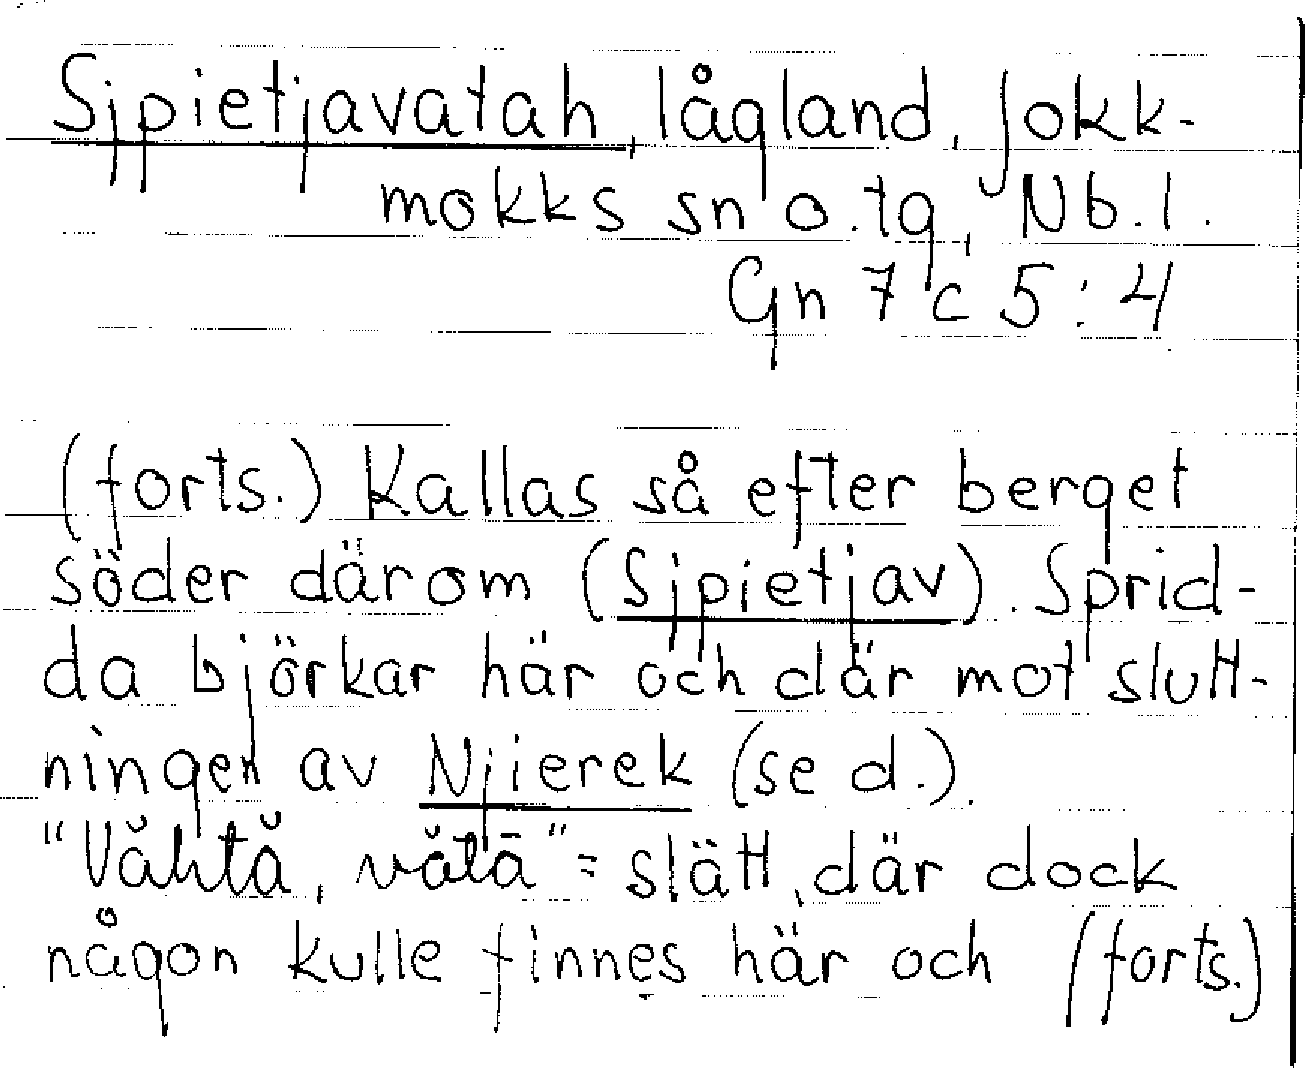 Sjpietjavatah, lågland, Jokk-
mokks sn o. tg, Nb. l.
Gn 7 c 5:4
(forts.) Kallas så efter berget
söder därom (Sjpietjav). Sprid-
da björkar här och där mot slutt-
ningen av Njierek (se d.).
"Văhtă, vătā" = slätt, där dock
någon kulle finnes här och (forts.)